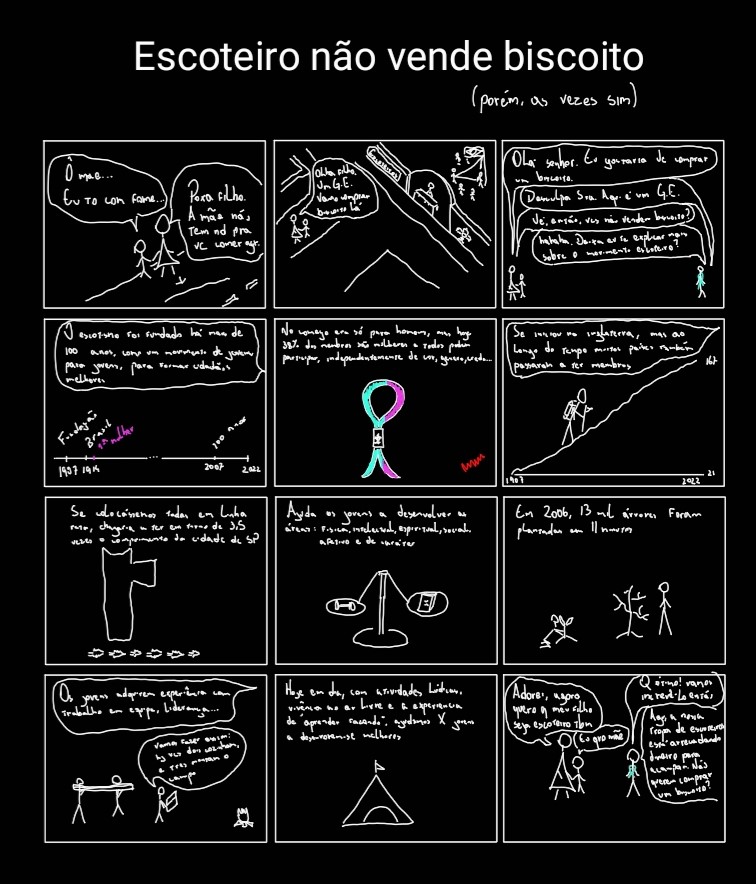 Escoteiro não vende biscoito
(porém, as vezes sim)
Ô mãe...
Eu to con fome...
Poxa filho.
A mãe nós
tem nd pra
vc comer agr.
Olha filho.
Um G.E.
Vamo comprar
biscoito lá
Olá senhor. Eu gostaria de comprar
um biscoito.
Desculpa Sra. Aqr é um G.E.
Ué, então, vcs não vendem biscoito?
hahaha. Deixa eu te explicar mais
sobre o movimento escoteiro?
O escotismo foi fundado há mais de
100 anos, como um movimento de jovens
para jovens, para formar cidadãos
melhores
Fundação
Brasil
1ª mulher
100 anos
1907 1914 ... 2007 2022
No começo era só para homens, mas hoje
38% dos membros são mulheres e todos podem
participar, independentemente de cor, gênero, credo...
Se iniciou na inglaterra, mas ao
longo do tempo muitos países também
passaram a ter membros
167
21
1907 2022
Se colocássemos todos em linha
reta, chegaria a ter em torno de 3,5
vezes o comprimento da cidade de SP
Ajuda os jovens a desenvolver as
áreas: física, intelectual, espiritual, social,
afetivo e de caráter
Em 2006, 13 mil árvores foram
plantadas em 11 minutos
Os jovens adquirem experiência com
trabalho em equipe, liderança...
Vamos fazer assim:
vcs dois cozinham,
e três montam o
campo
Hoje em dia, com atividades lúdicas,
vivência ao ar livre e a experiência
de "aprender fazendo", ajudamos X jovens
a desenvolverem-se melhores
Adorei, agora
quero q meu filho
seja escoteiro tbm
Eu qro mãe
Q ótimo! vamos
inscrevê-lo então
Aqr, a nossa
tropa de escoteiros
está arrecadando
dinheiro para
acampar. Não
querem comprar
um biscoito?